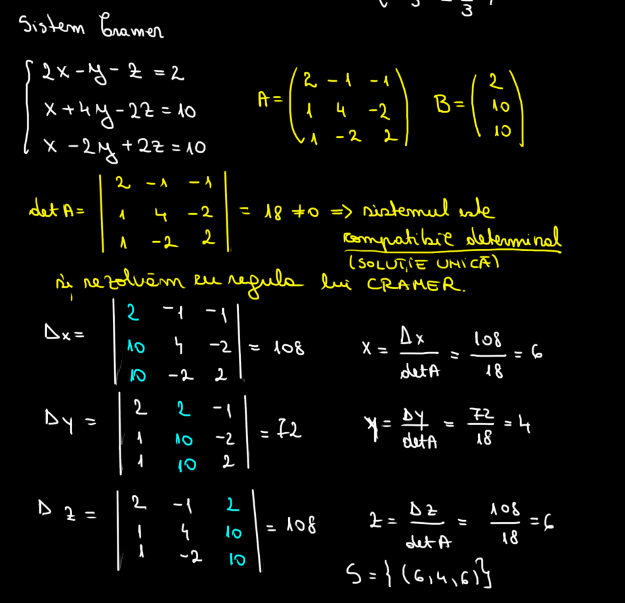 3 - 3
Sistem Cramer
{ 2x - y - z = 2
x + 4y - 2z = 10
x - 2y + 2z = 10
A = ( 2 -1 -1
1 4 -2
1 -2 2 )
B = ( 2
10
10 )
det A = | 2 -1 -1 |
| 1 4 -2 | = 18 ≠ 0 => sistemul este
| 1 -2 2 | compatibil determinat
(SOLUȚIE UNICĂ)
și rezolvăm cu regula lui CRAMER.
Δx = | 2 -1 -1 |
| 10 4 -2 | = 108
| 10 -2 2 |
x = Δx / det A = 108 / 18 = 6
Δy = | 2 2 -1 |
| 1 10 -2 | = 72
| 1 10 2 |
y = Δy / det A = 72 / 18 = 4
Δz = | 2 -1 2 |
| 1 4 10 | = 108
| 1 -2 10 |
z = Δz / det A = 108 / 18 = 6
S = { (6, 4, 6) }